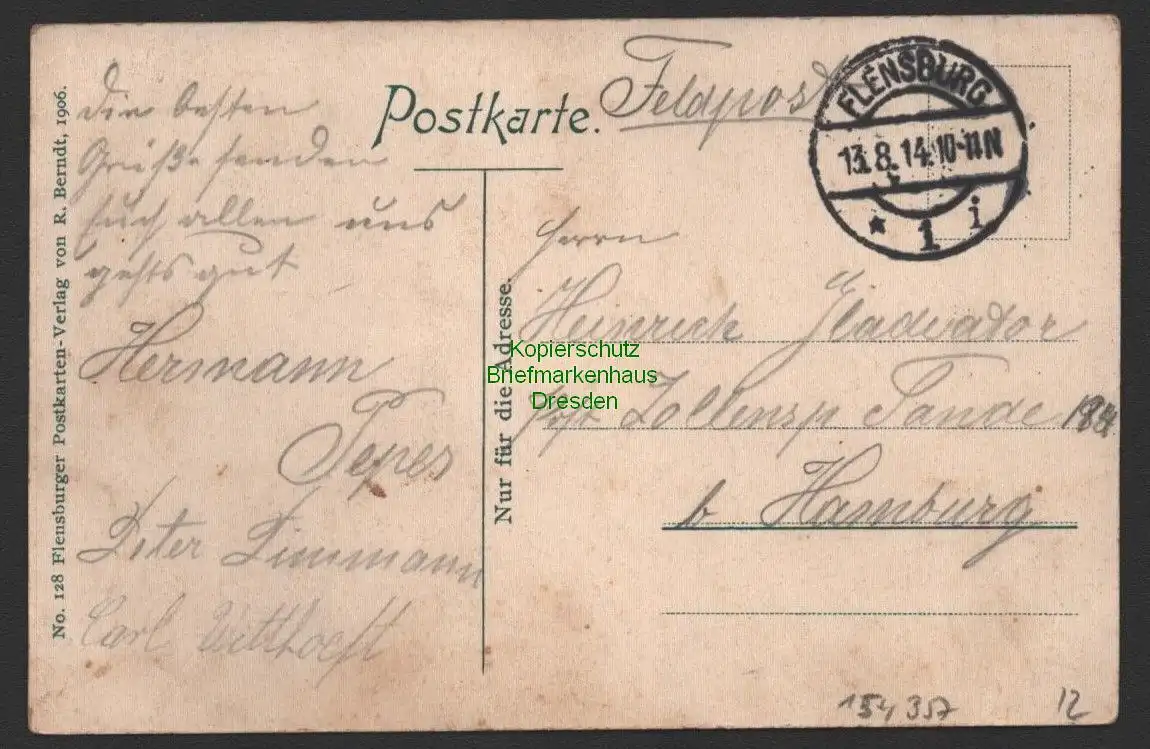 No. 128 Flensburger Postkarten-Verlag von R. Berndt, 1906.
Die besten
Grüße senden
Euch allen uns
gehts gut
Hermann
Tepes
Peter Timmann
Carl Witthoeft
Postkarte.
Feldpost
FLENSBURG
13.8.14.10-11N
* 1 i
Nur für die Adresse.
Herrn
Heinrich
Post Zollensp
b Hamburg
Kopierschutz
Briefmarkenhaus
Dresden
154357
12